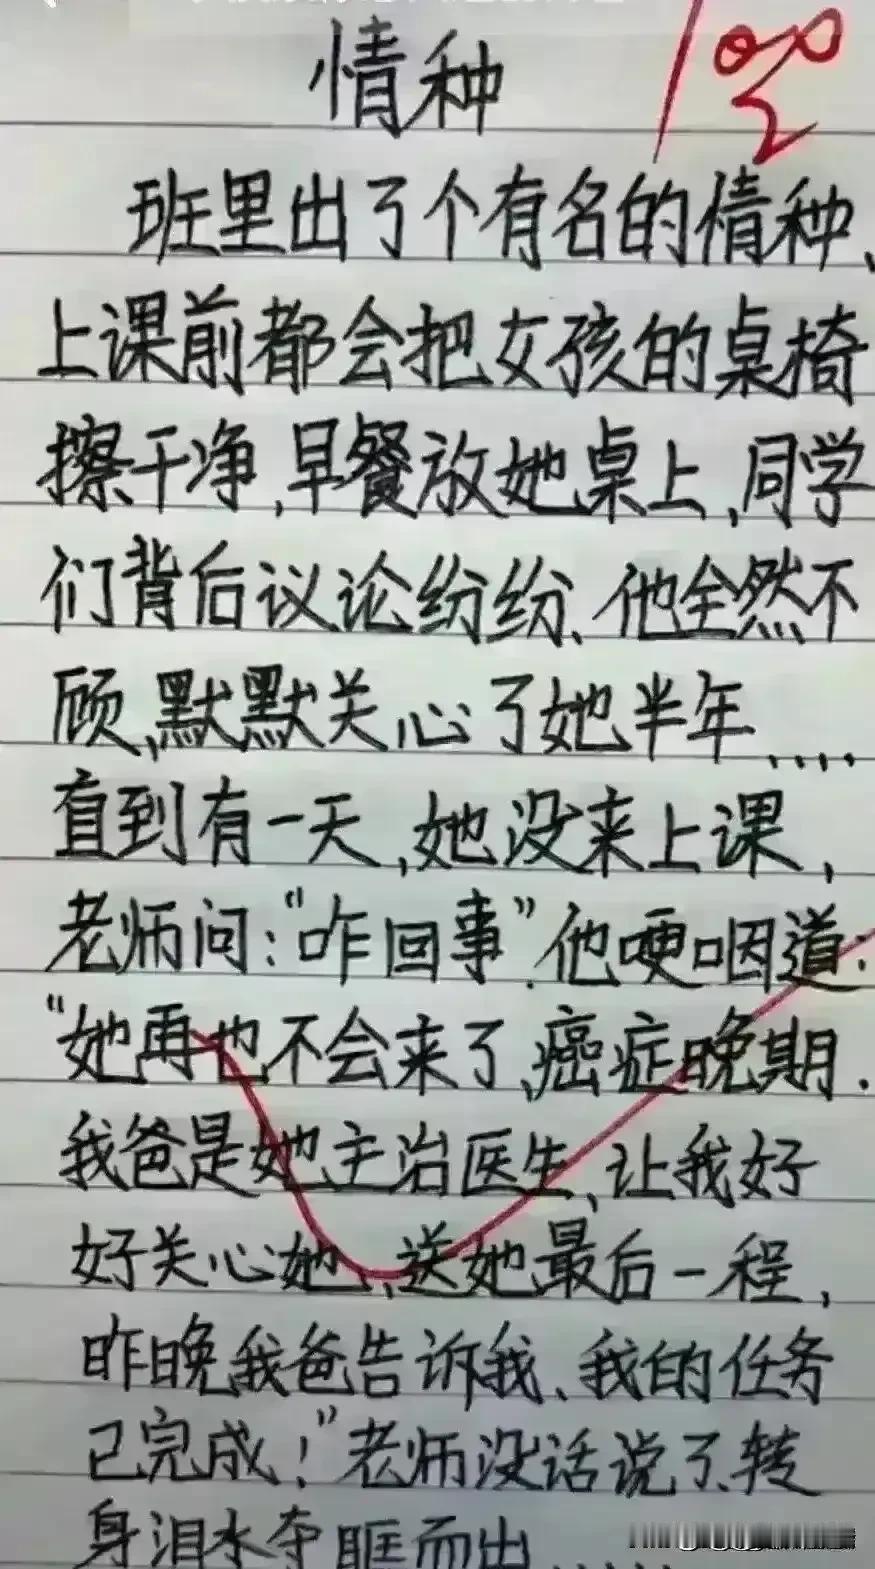 情种
100
班里出了个有名的情种、
上课前都会把女孩的桌椅
擦干净,早餐放她桌上,同学
们背后议论纷纷、他全然不
顾,默默关心了她半年....
直到有一天,她没来上课,
老师问:“咋回事”.他哽咽道:
“她再也不会来了,癌症晚期.
我爸是她主治医生,让我好
好关心她,送她最后一程,
昨晚我爸告诉我、我的任务
已完成!”老师没话说了、转
身泪水夺眶而出......